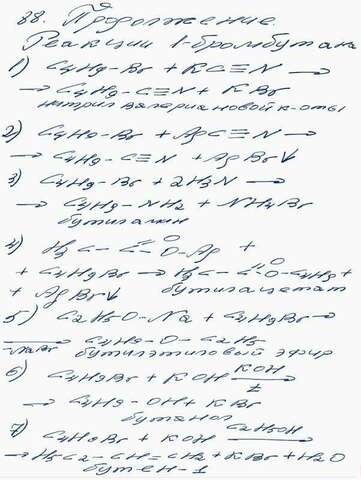 88. Продолжение.
Реакции 1-бромбутана
1) C4H9-Br + KC≡N →
→ C4H9-C≡N + KBr
нитрил валериановой к-оты
2) C4H9-Br + AgC≡N →
→ C4H9-C≡N + AgBr↓
3) C4H9-Br + 2H3N →
→ C4H9-NH2 + NH4Br
бутиламин
4) H3C-C(=O)O-Ag +
+ C4H9Br → H3C-C(=O)O-C4H9+
+ AgBr↓ бутилацетат
5) C2H5O-Na + C4H9Br →
-NaBr→ C4H9-O-C2H5
бутилэтиловый эфир
6) C4H9Br + KOH KOH/t →
→ C4H9-OH + KBr
бутанол
7) C4H9Br + KOH C2H5OH →
→ H5C2-CH=CH2+KBr+H2O
бутен-1